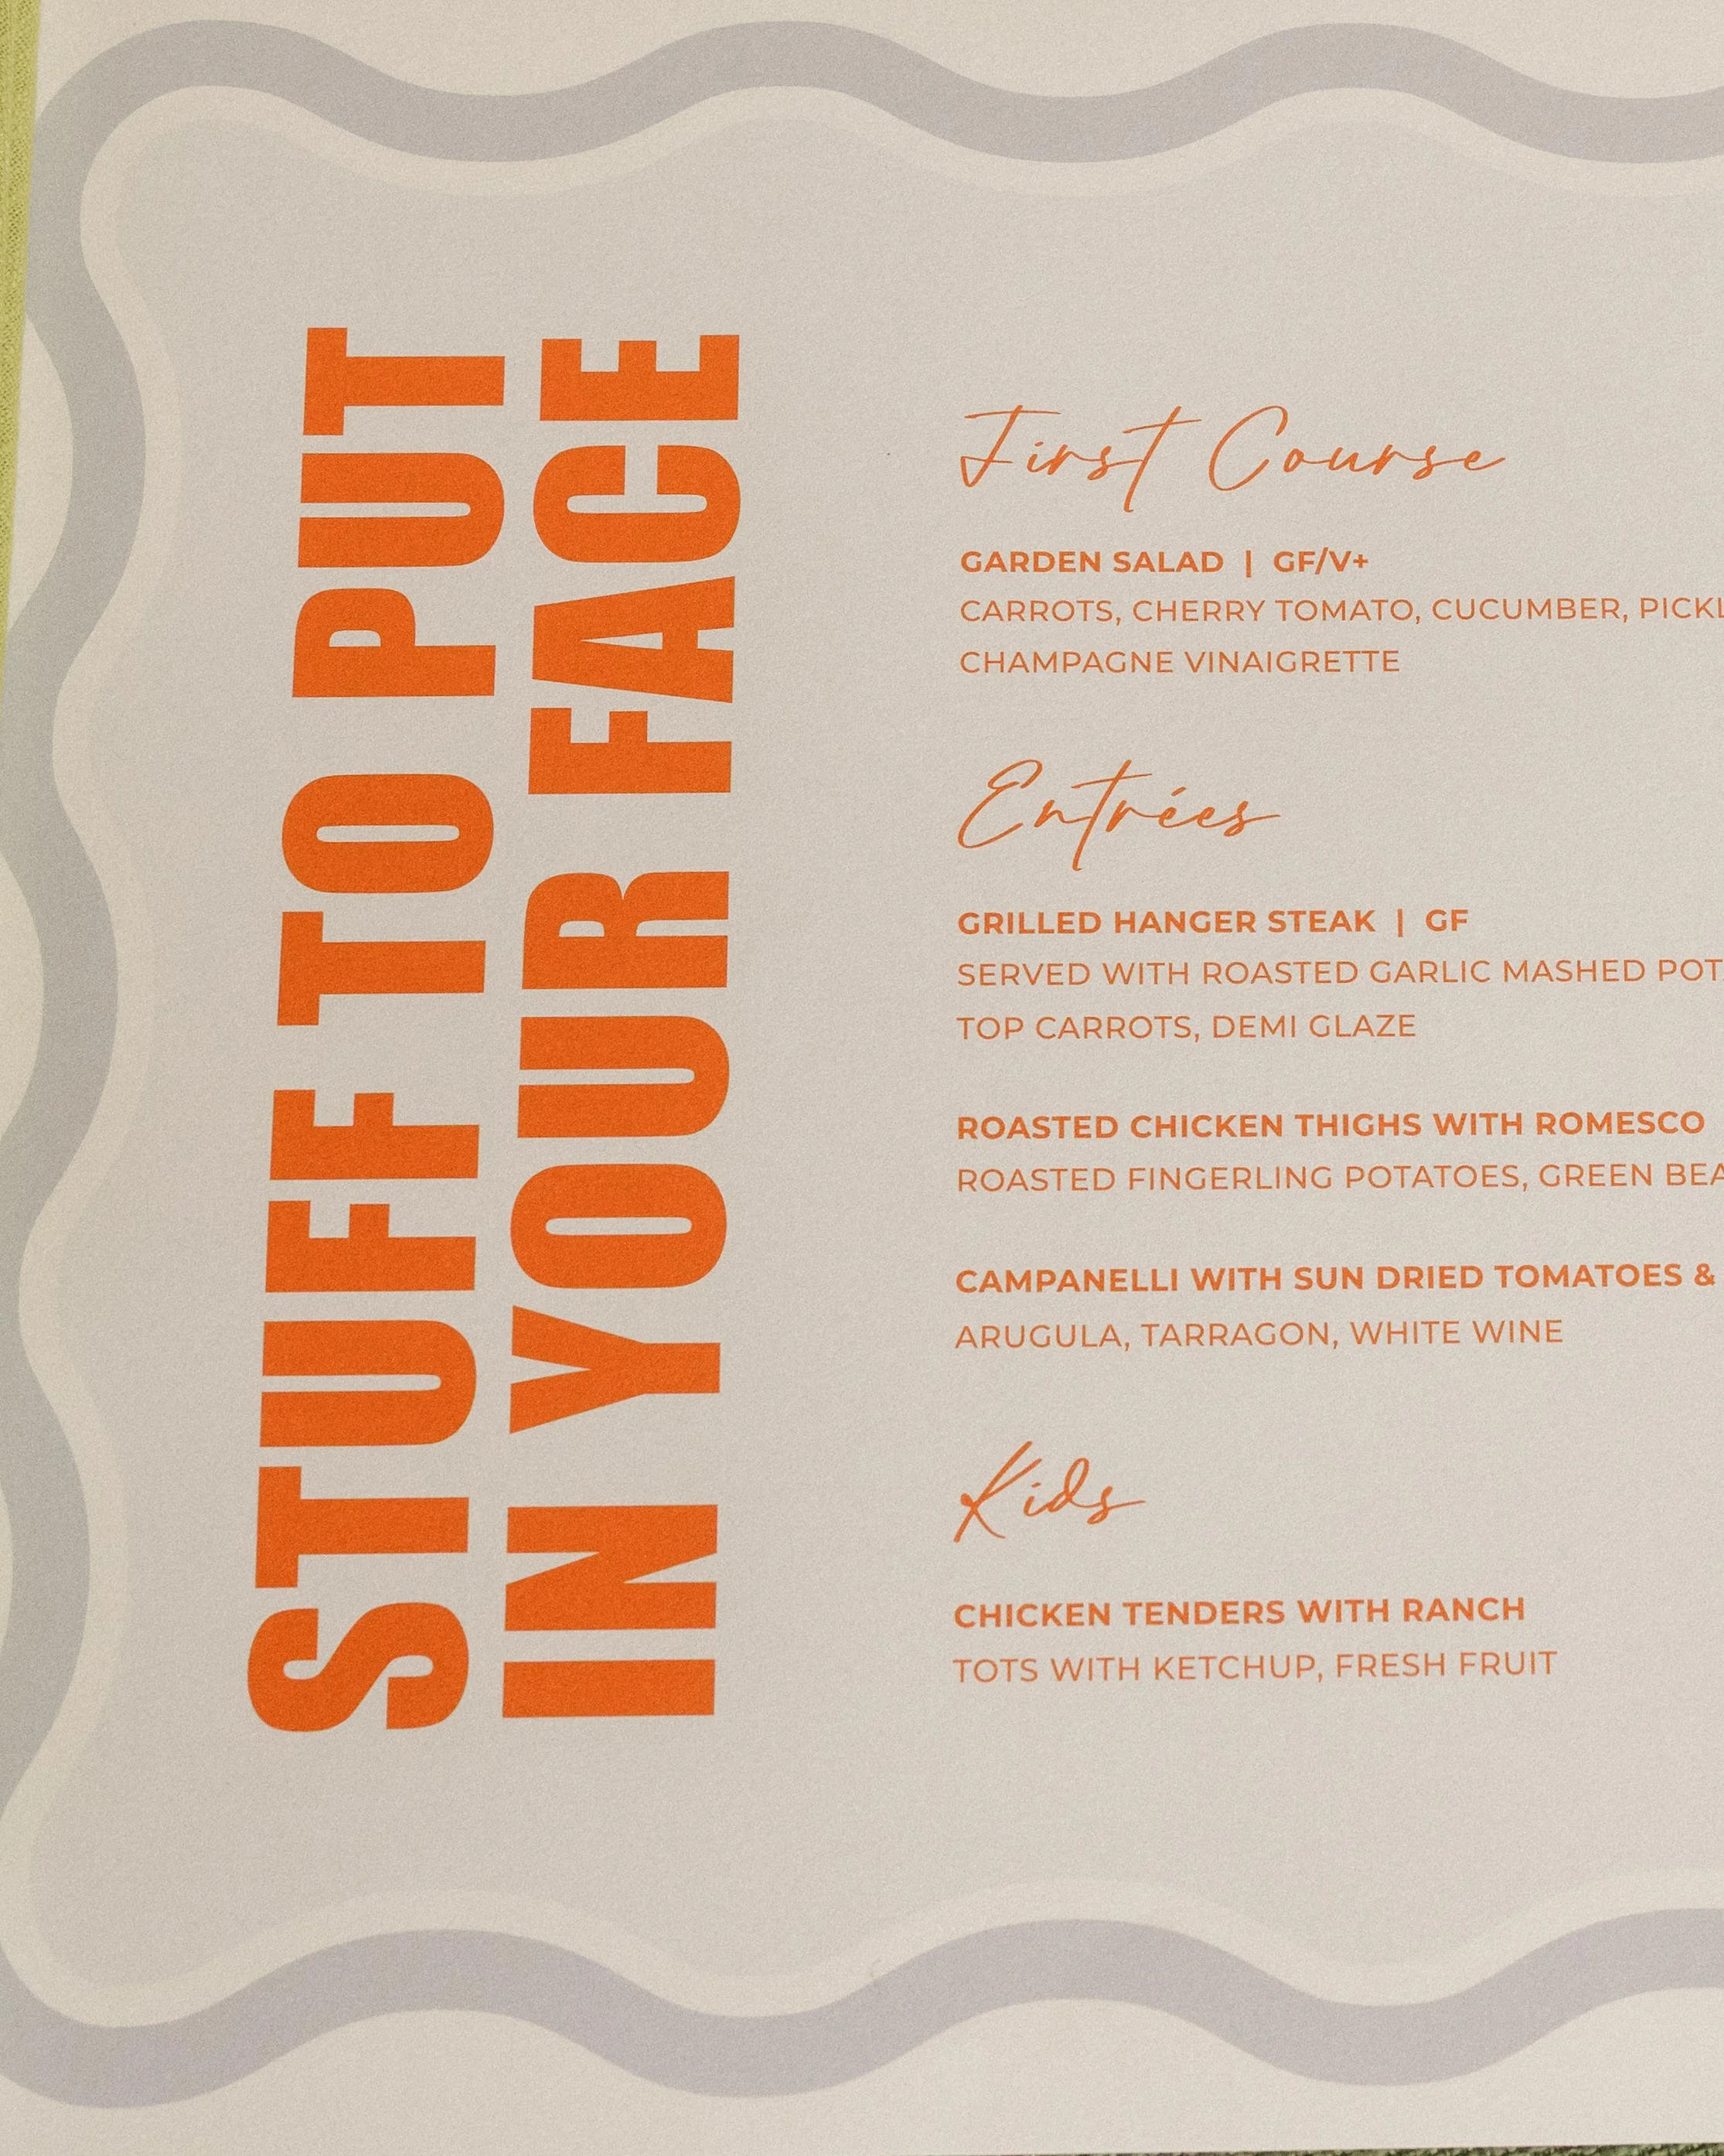 STUFF TO PUT
IN YOUR FACE
First Course
GARDEN SALAD | GF/V+
CARROTS, CHERRY TOMATO, CUCUMBER,
CHAMPAGNE VINAIGRETTE
Entrées
GRILLED HANGER STEAK | GF
SERVED WITH ROASTED GARLIC MASHED
TOP CARROTS, DEMI GLAZE
ROASTED CHICKEN THIGHS WITH ROMESCO
ROASTED FINGERLING POTATOES, GREEN
CAMPANELLI WITH SUN DRIED TOMATOES &
ARUGULA, TARRAGON, WHITE WINE
Kids
CHICKEN TENDERS WITH RANCH
TOTS WITH KETCHUP, FRESH FRUIT